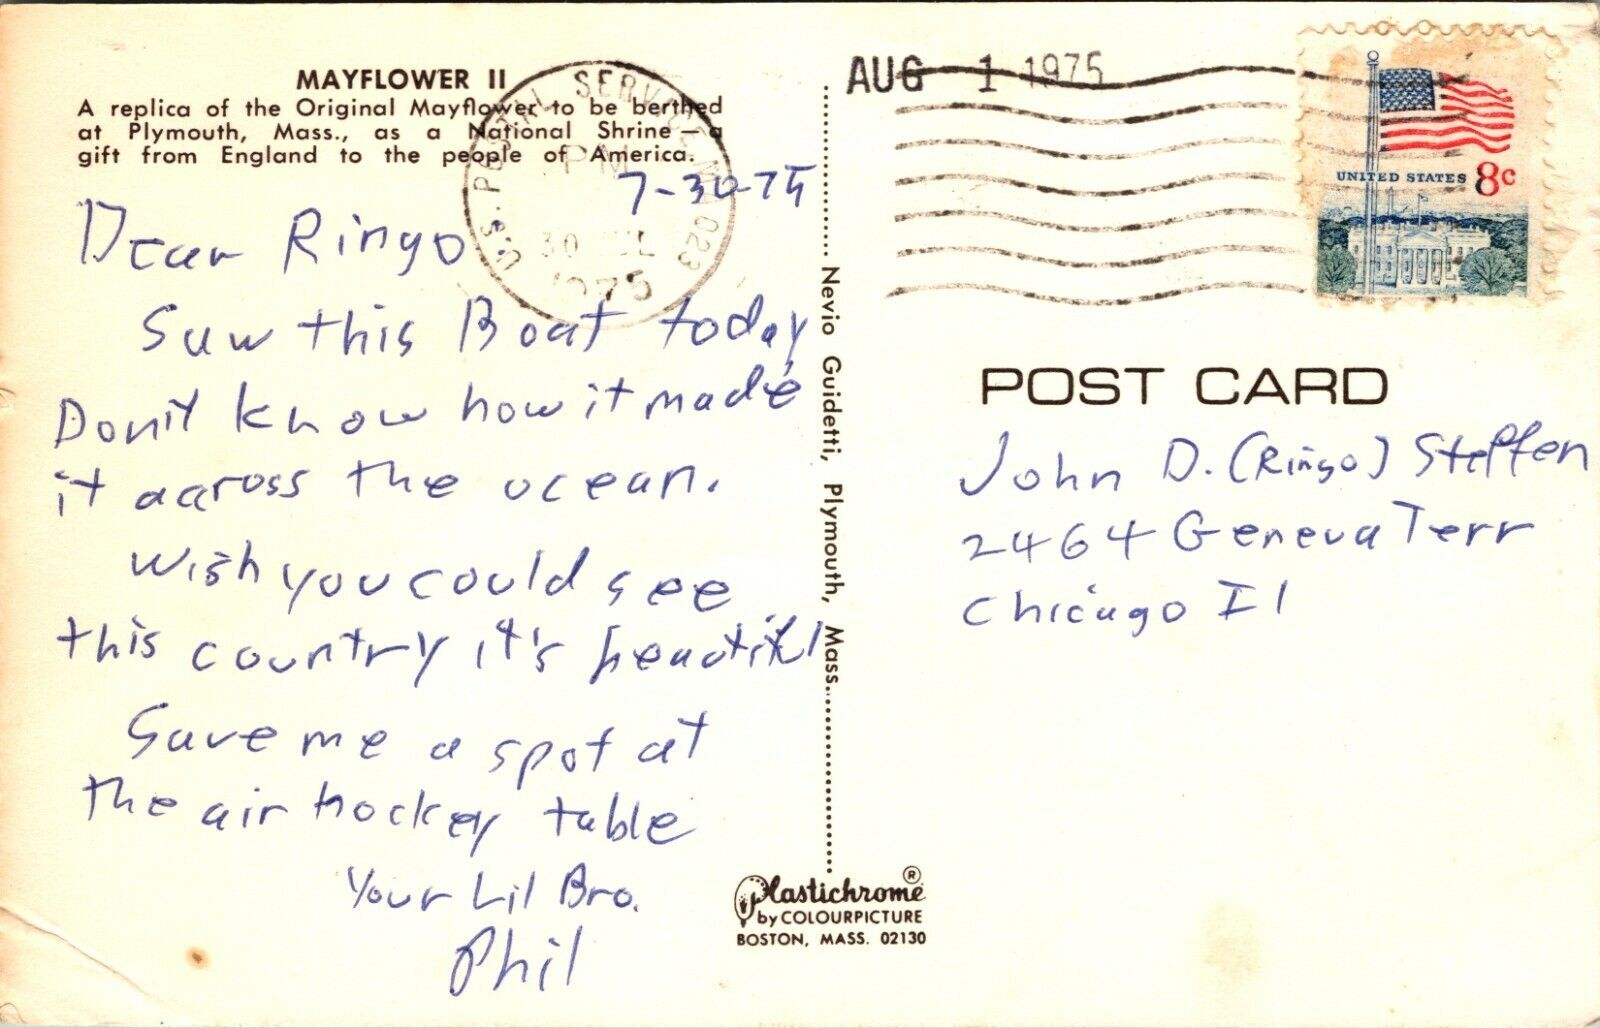 MAYFLOWER II
A replica of the Original Mayflower to be berthed
at Plymouth, Mass., as a National Shrine – a
gift from England to the people of America.
7-30-75
Dear Ringo
Saw this Boat today
Don't know how it made
it across the ocean.
Wish you could see
this country it's beautiful
Save me a spot at
the air hockey table
Your Lil Bro.
Phil
U.S. POSTAL SERVICE, MA 023
PM
30 JUL
1975
Nevio Guidetti, Plymouth, Mass.
Plastichrome®
by COLOURPICTURE
BOSTON, MASS. 02130
AUG 1 1975
UNITED STATES 8c
POST CARD
John D. (Ringo) Steffen
2464 Geneva Terr
Chicago Il